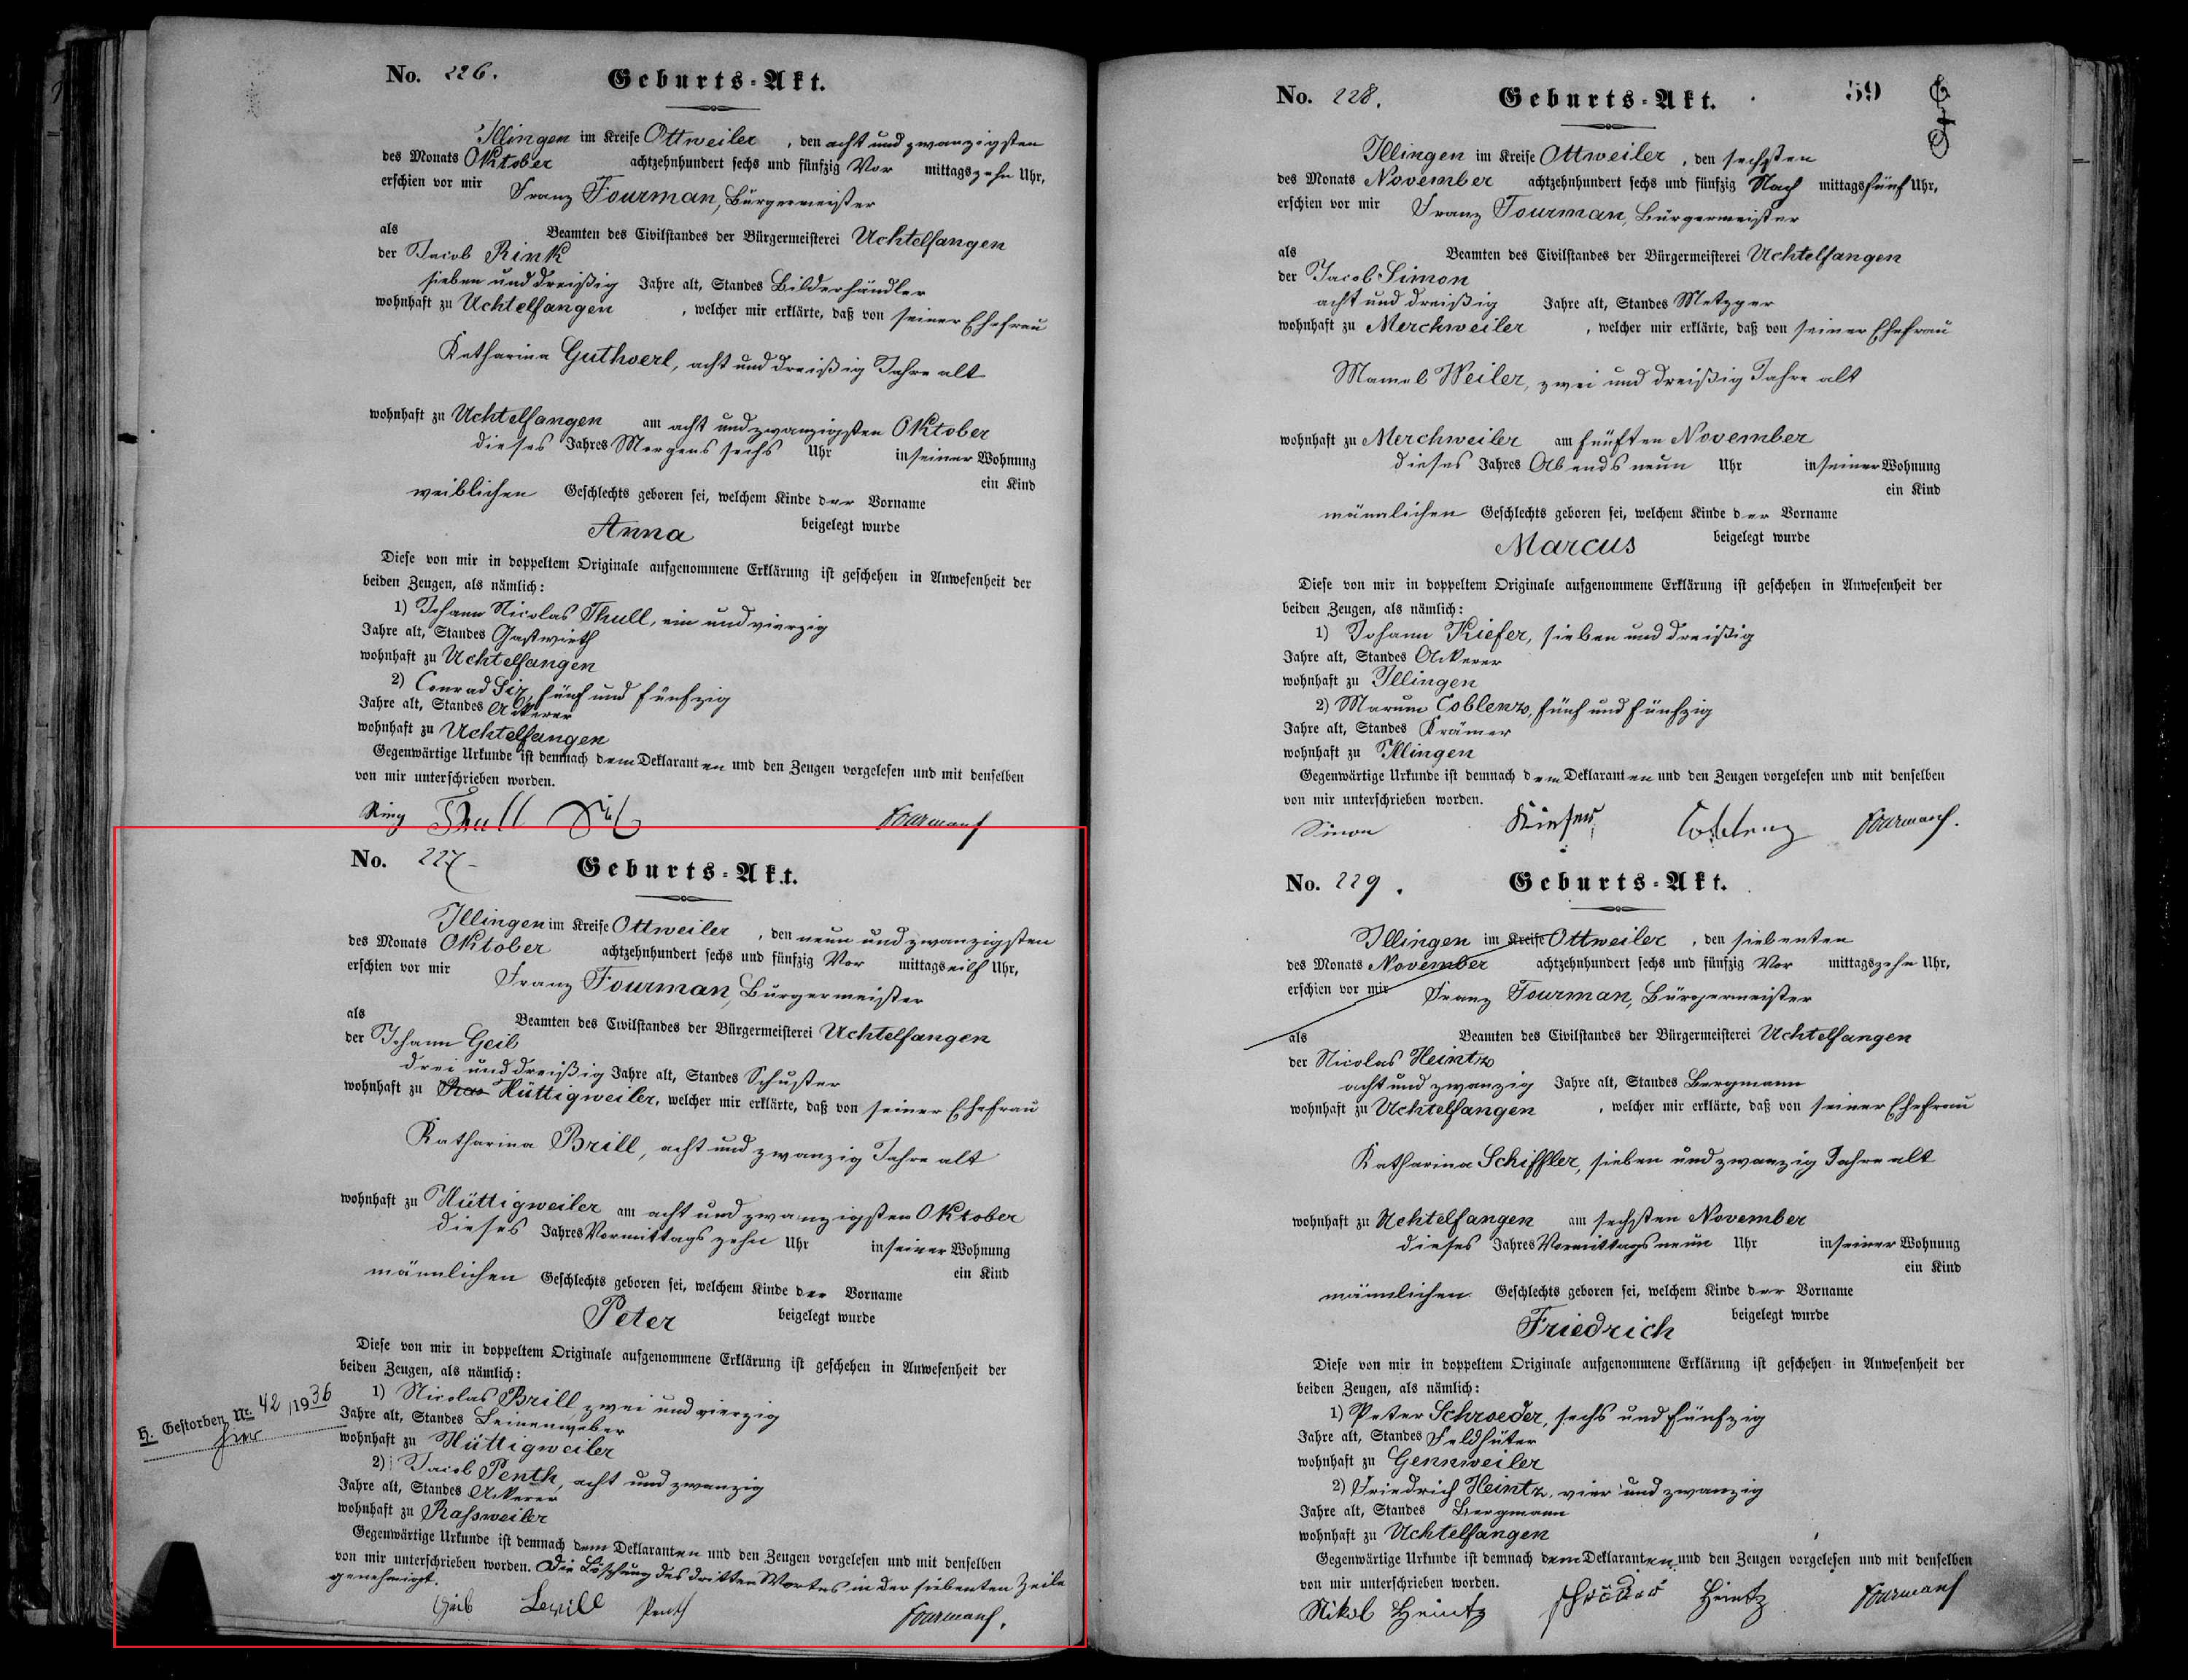 No. 226. Geburts-Akt.
Illingen im Kreise Ottweiler, den acht und zwanzigsten
des Monats Oktober achtzehnhundert sechs und fünfzig Vor mittags zehn Uhr,
erschien vor mir Franz Fourman, Bürgermeister
als Beamten des Civilstandes der Bürgermeisterei Uchtelfangen
der Jacob Rink
sieben und dreißig Jahre alt, Standes Bilderhändler
wohnhaft zu Uchtelfangen, welcher mir erklärte, daß von seiner Ehefrau
Katharina Guthoerl, acht und dreißig Jahre alt
wohnhaft zu Uchtelfangen am acht und zwanzigsten Oktober
dieses Jahres Morgens sechs Uhr in seiner Wohnung
ein Kind
weiblichen Geschlechts geboren sei, welchem Kinde der Vorname
Anna beigelegt wurde
Diese von mir in doppeltem Originale aufgenommene Erklärung ist geschehen in Anwesenheit der
beiden Zeugen, als nämlich:
1) Johann Nicolas Thull, ein und vierzig
Jahre alt, Standes Gastwirth
wohnhaft zu Uchtelfangen
2) Conrad Six, fünf und fünfzig
Jahre alt, Standes Ackerer
wohnhaft zu Uchtelfangen
Gegenwärtige Urkunde ist demnach dem Deklaranten und den Zeugen vorgelesen und mit denselben
von mir unterschrieben worden.
Ring Thull Six Fourman
No. 227 Geburts-Akt.
Illingen im Kreise Ottweiler, den neun und zwanzigsten
des Monats Oktober achtzehnhundert sechs und fünfzig Vor mittags eilf Uhr,
erschien vor mir Franz Fourman, Bürgermeister
als Beamten des Civilstandes der Bürgermeisterei Uchtelfangen
der Johann Geib
drei und dreißig Jahre alt, Standes Schuster
wohnhaft zu Hüttigweiler, welcher mir erklärte, daß von seiner Ehefrau
Katharina Brill, acht und zwanzig Jahre alt
wohnhaft zu Hüttigweiler am acht und zwanzigsten Oktober
dieses Jahres Vormittags zehn Uhr in seiner Wohnung
ein Kind
männlichen Geschlechts geboren sei, welchem Kinde der Vorname
Peter beigelegt wurde
Diese von mir in doppeltem Originale aufgenommene Erklärung ist geschehen in Anwesenheit der
beiden Zeugen, als nämlich:
1) Nicolas Brill zwei und vierzig
Jahre alt, Standes Leinenweber
wohnhaft zu Hüttigweiler
2) Jacob Penth, acht und zwanzig
Jahre alt, Standes Ackerer
wohnhaft zu Raßweiler
Gegenwärtige Urkunde ist demnach dem Deklaranten und den Zeugen vorgelesen und mit denselben
von mir unterschrieben worden. Die Löschung des dritten Wortes in der siebenten Zeile
genehmigt.
Geib Brill Penth Fourman.
H. Gestorben Nr. 42 / 1936
hier
No. 228. Geburts-Akt. 59
Illingen im Kreise Ottweiler, den sechsten
des Monats November achtzehnhundert sechs und fünfzig Nach mittags fünf Uhr,
erschien vor mir Franz Fourman, Bürgermeister
als Beamten des Civilstandes der Bürgermeisterei Uchtelfangen
der Jacob Simon
acht und dreißig Jahre alt, Standes Metzger
wohnhaft zu Merchweiler, welcher mir erklärte, daß von seiner Ehefrau
Mamel Weiler, zwei und dreißig Jahre alt
wohnhaft zu Merchweiler am fünften November
dieses Jahres Abends neun Uhr in seiner Wohnung
ein Kind
männlichen Geschlechts geboren sei, welchem Kinde der Vorname
Marcus beigelegt wurde
Diese von mir in doppeltem Originale aufgenommene Erklärung ist geschehen in Anwesenheit der
beiden Zeugen, als nämlich:
1) Johann Kiefer, sieben und dreißig
Jahre alt, Standes Ackerer
wohnhaft zu Illingen
2) Marum Coblenz, fünf und fünfzig
Jahre alt, Standes Krämer
wohnhaft zu Illingen
Gegenwärtige Urkunde ist demnach dem Deklaranten und den Zeugen vorgelesen und mit denselben
von mir unterschrieben worden.
Simon Kiefer Coblenz Fourman.
No. 229. Geburts-Akt.
Illingen im Kreise Ottweiler, den siebenten
des Monats November achtzehnhundert sechs und fünfzig Vor mittags zehn Uhr,
erschien vor mir Franz Fourman, Bürgermeister
als Beamten des Civilstandes der Bürgermeisterei Uchtelfangen
der Nicolas Heintz
acht und zwanzig Jahre alt, Standes Bergmann
wohnhaft zu Uchtelfangen, welcher mir erklärte, daß von seiner Ehefrau
Katharina Schiffler, sieben und zwanzig Jahre alt
wohnhaft zu Uchtelfangen am sechsten November
dieses Jahres Vormittags neun Uhr in seiner Wohnung
ein Kind
männlichen Geschlechts geboren sei, welchem Kinde der Vorname
Friedrich beigelegt wurde
Diese von mir in doppeltem Originale aufgenommene Erklärung ist geschehen in Anwesenheit der
beiden Zeugen, als nämlich:
1) Peter Schroeder, sechs und fünfzig
Jahre alt, Standes Feldhüter
wohnhaft zu Gennweiler
2) Friedrich Heintz, vier und zwanzig
Jahre alt, Standes Bergmann
wohnhaft zu Uchtelfangen
Gegenwärtige Urkunde ist demnach dem Deklaranten und den Zeugen vorgelesen und mit denselben
von mir unterschrieben worden.
Nikol Heintz Schröder Heintz Fourman